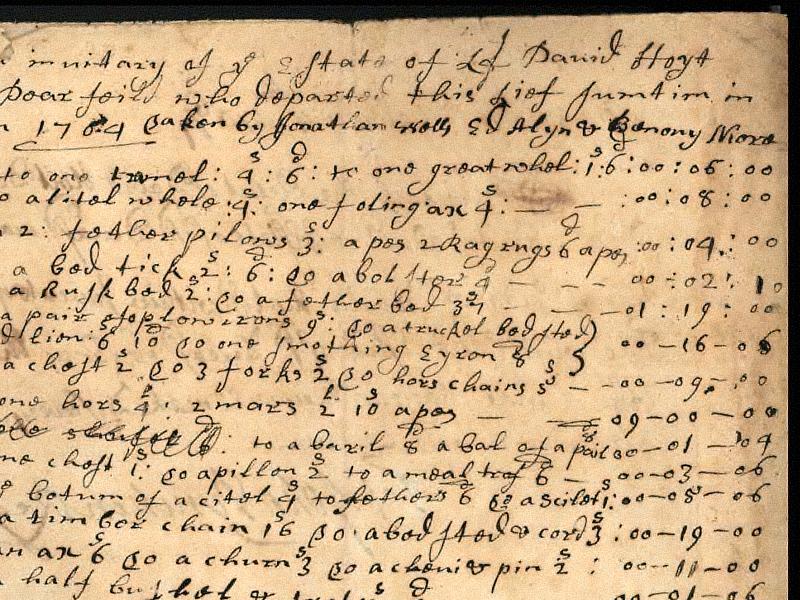 invitary of ye Estate of Lf David Hoyt
Dear feild who departed this Lief sumtim in
1704 taken by Jonathan wells Ed Alyn & Benony More
to one tramel: 4 s : 6 d : to one great whel: 1 s :6 : 00 : 06 : 00
a litel whele : 4 s : one foling ax 4 s : — — : 00 : 08 : 00
2 : fether pilows 3 s : a pes 2 Rag rugs 6 d a pes : 00 : 04 : 00
a bed tick 2 s : 6 d : to a bolster 4 d — — — 00 : 02 : 10
a Rush bed 2 s : to a fether bed — — — 01 : 19 : 00
a pair of plow irons 9 s : to a truckel bedsted
lien : 6 s 10 d to one smothing Eyron 8 d } 00 — 16 — 06
a chest 2 s to 3 forks 2 s to hors chains 5 s — 00 — 09 — 00
one hors 4 L : 2 mars 2 L 10 s a pes — 09 — 00 — 00
: to a baril 8 d a bal of a pail 8 d 00 — 01 — 04
chest 1 s : to a pillon 2 s to a meal trof 6 d — 00 — 03 — 06
botum of a citel 4 s to fethers 6 d to a scilet 1 s : 00 — 08 — 06
a timber chain 16 s to a bedsted & cord 3 s : 00 — 19 — 00
an ax 6 s to a churn 3 s to a & pin 2 s : 00 — 11 — 00
a half bushel & 00 — 01 — 06